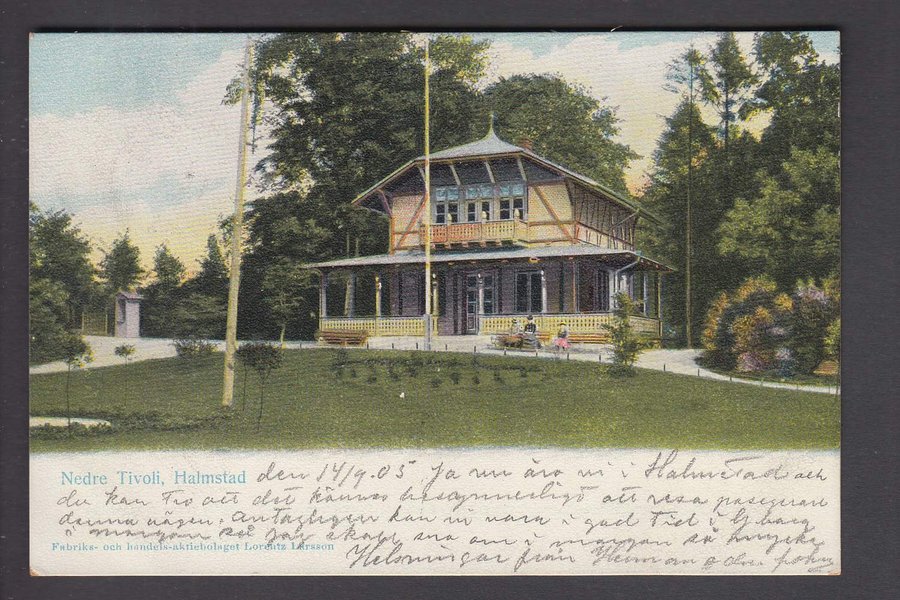 Nedre Tivoli, Halmstad den 14/9.05 Ja nu äro vi i Halmstad och
du kan tro att det kännes besynnerligt att resa
denna vägen. Antagligen kan vi vara i god tid i Gbarg
i morgon jag skall om i morgon så mycke
Fabriks- och handels-aktiebolaget Lorentz Larsson
Helsningar från Herman